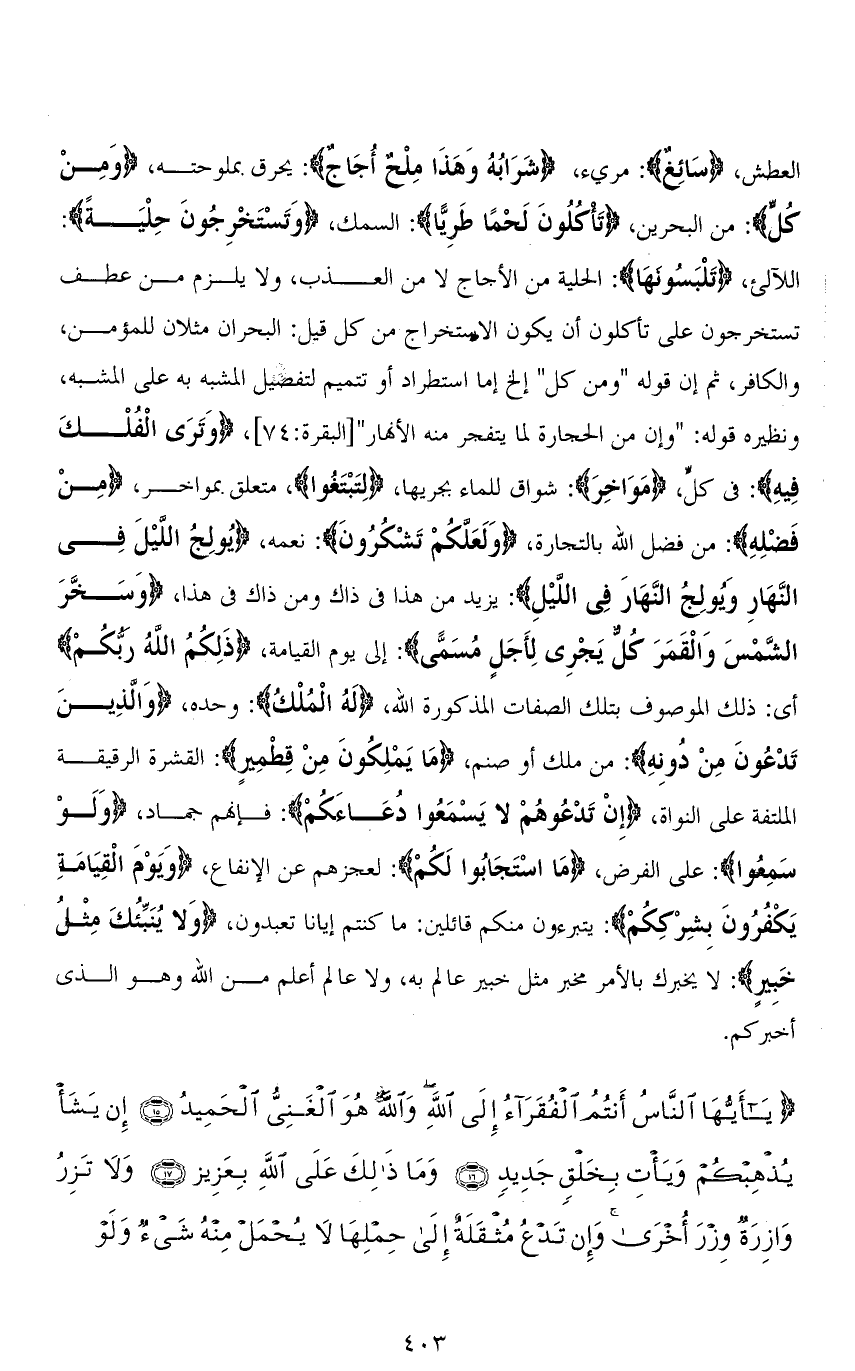 العطش، ﴿سَائِغٌ﴾: مريء، ﴿شَرَابُهُ وَهَذَا مِلْحٌ أُجَاجٌ﴾: يحرق بملوحته، ﴿وَمِنْ
كُلٍّ﴾: من البحرين، ﴿تَأْكُلُونَ لَحْمًا طَرِيًّا﴾: السمك، ﴿وَتَسْتَخْرِجُونَ حِلْيَةً﴾:
اللآلئ، ﴿تَلْبَسُونَهَا﴾: الحلية من الأجاج لا من العذب، ولا يلزم من عطف
تستخرجون على تأكلون أن يكون الاستخراج من كل قيل: البحران مثلان للمؤمن،
والكافر، ثم إن قوله "ومن كل" إلخ إما استطراد أو تتميم لتفضيل المشبه به على المشبه،
ونظيره قوله: "وإن من الحجارة لما يتفجر منه الأنهار"[البقرة:٧٤]، ﴿وَتَرَى الْفُلْكَ
فِيهِ﴾: فى كلٍّ، ﴿مَوَاخِرَ﴾: شواق للماء بجريها، ﴿لِتَبْتَغُوا﴾، متعلق بمواخر، ﴿مِنْ
فَضْلِهِ﴾: من فضل الله بالتجارة، ﴿وَلَعَلَّكُمْ تَشْكُرُونَ﴾: نعمه، ﴿يُولِجُ اللَّيْلَ فِى
النَّهَارِ وَيُولِجُ النَّهَارَ فِى اللَّيْلِ﴾: يزيد من هذا فى ذاك ومن ذاك فى هذا، ﴿وَسَخَّرَ
الشَّمْسَ وَالْقَمَرَ كُلٌّ يَجْرِى لِأَجَلٍ مُسَمًّى﴾: إلى يوم القيامة، ﴿ذَلِكُمُ اللَّهُ رَبُّكُمْ﴾
أى: ذلك الموصوف بتلك الصفات المذكورة الله، ﴿لَهُ الْمُلْكُ﴾: وحده، ﴿وَالَّذِينَ
تَدْعُونَ مِنْ دُونِهِ﴾: من ملك أو صنم، ﴿مَا يَمْلِكُونَ مِنْ قِطْمِيرٍ﴾: القشرة الرقيقة
الملتفة على النواة، ﴿إِنْ تَدْعُوهُمْ لا يَسْمَعُوا دُعَاءَكُمْ﴾: فإنهم جماد، ﴿وَلَوْ
سَمِعُوا﴾: على الفرض، ﴿مَا اسْتَجَابُوا لَكُمْ﴾: لعجزهم عن الإنفاع، ﴿وَيَوْمَ الْقِيَامَةِ
يَكْفُرُونَ بِشِرْكِكُمْ﴾: يتبرءون منكم قائلين: ما كنتم إيانا تعبدون، ﴿وَلا يُنَبِّئُكَ مِثْلُ
خَبِيرٍ﴾: لا يخبرك بالأمر مخبر مثل خبير عالم به، ولا عالم أعلم من الله وهو الذى
أخبركم.
﴿ يَـٰٓأَيُّهَا ٱلنَّاسُ أَنتُمُ ٱلْفُقَرَآءُ إِلَى ٱللَّهِ ۖ وَٱللَّهُ هُوَ ٱلْغَنِىُّ ٱلْحَمِيدُ ١٥ إِن يَشَأْ
يُذْهِبْكُمْ وَيَأْتِ بِخَلْقٍ جَدِيدٍ ١٦ وَمَا ذَٰلِكَ عَلَى ٱللَّهِ بِعَزِيزٍ ١٧ وَلَا تَزِرُ
وَازِرَةٌ وِزْرَ أُخْرَىٰ ۚ وَإِن تَدْعُ مُثْقَلَةٌ إِلَىٰ حِمْلِهَا لَا يُحْمَلْ مِنْهُ شَىْءٌ وَلَوْ
٤٠٣